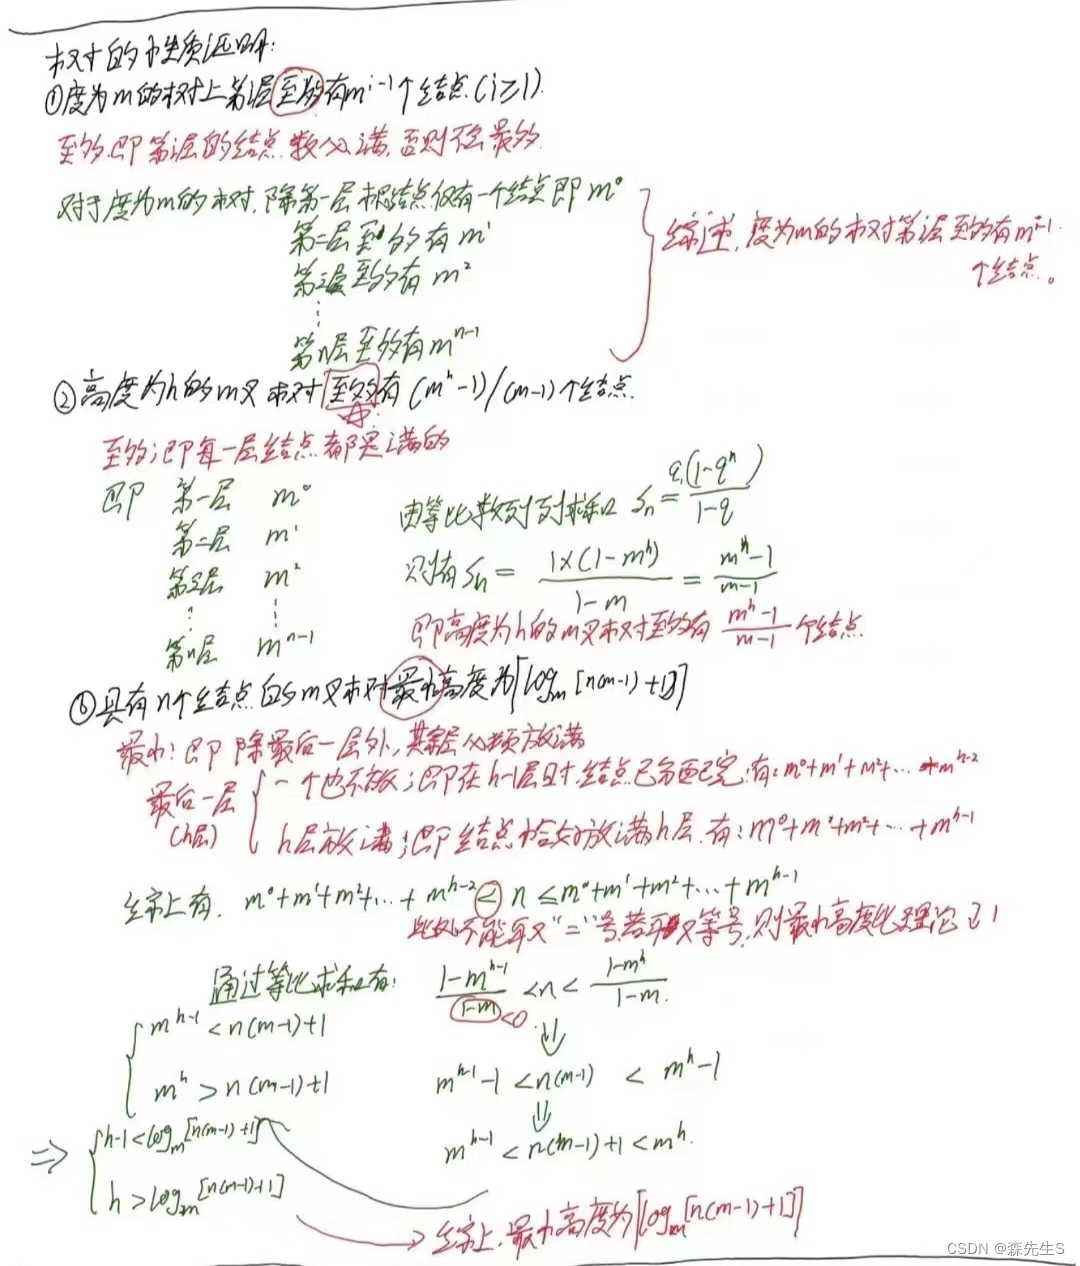 树的性质证明:
①度为m的树上第i层至多有m^{i-1}个结点(i≥1)
至多,即第i层的结点数必满,否则不会最多
对于度为m的树,除第一层根结点仅有一个结点即m⁰
第二层至多有m¹
第三层至多有m²
⋮
第n层至多有m^{n-1}
综上述,度为m的树第i层至多有m^{i-1}
个结点。
②高度为h的m叉树至多有(m^h-1)/(m-1)个结点.
至多;即每一层结点都是满的
即 第一层 m⁰
第二层 m¹
第三层 m²
⋮ ⋮
第n层 m^{n-1}
由等比数列求和 Sn = q(1-q^n)/(1-q)
则有Sn = 1×(1-m^h)/(1-m) = (m^h-1)/(m-1)
即高度为h的m叉树至多有 (m^h-1)/(m-1) 个结点
③具有n个结点的m叉树最小高度为⌈log_m[n(m-1)+1]⌉
最小:即除最后一层外,其余层必须放满
最后一层
(h层)
一个也不放;即在h-1层时,结点已分配完,有:m⁰+m¹+m²+…+m^{h-2}
h层放满;即结点恰好放满h层.有:m⁰+m¹+m²+…+m^{h-1}
综上有. m⁰+m¹+m²+…+m^{h-2}<n≤m⁰+m¹+m²+…+m^{h-1}
此处不能取"="号,若取等号,则最小高度比理论 1
通过等比求和有: (1-m^{h-1})/(1-m) <n< (1-m^h)/(1-m)
<0
m^{h-1}<n(m-1)+1
m^h>n(m-1)+1
⇓
m^{h-1}-1<n(m-1)<m^h-1
⇓
m^{h-1}<n(m-1)+1<m^h.
⇒ h-1<log_m[n(m-1)+1]
h>log_m[n(m-1)+1]
→综上,最小高度为⌈log_m[n(m-1)+1]⌉
CSDN @森先生S